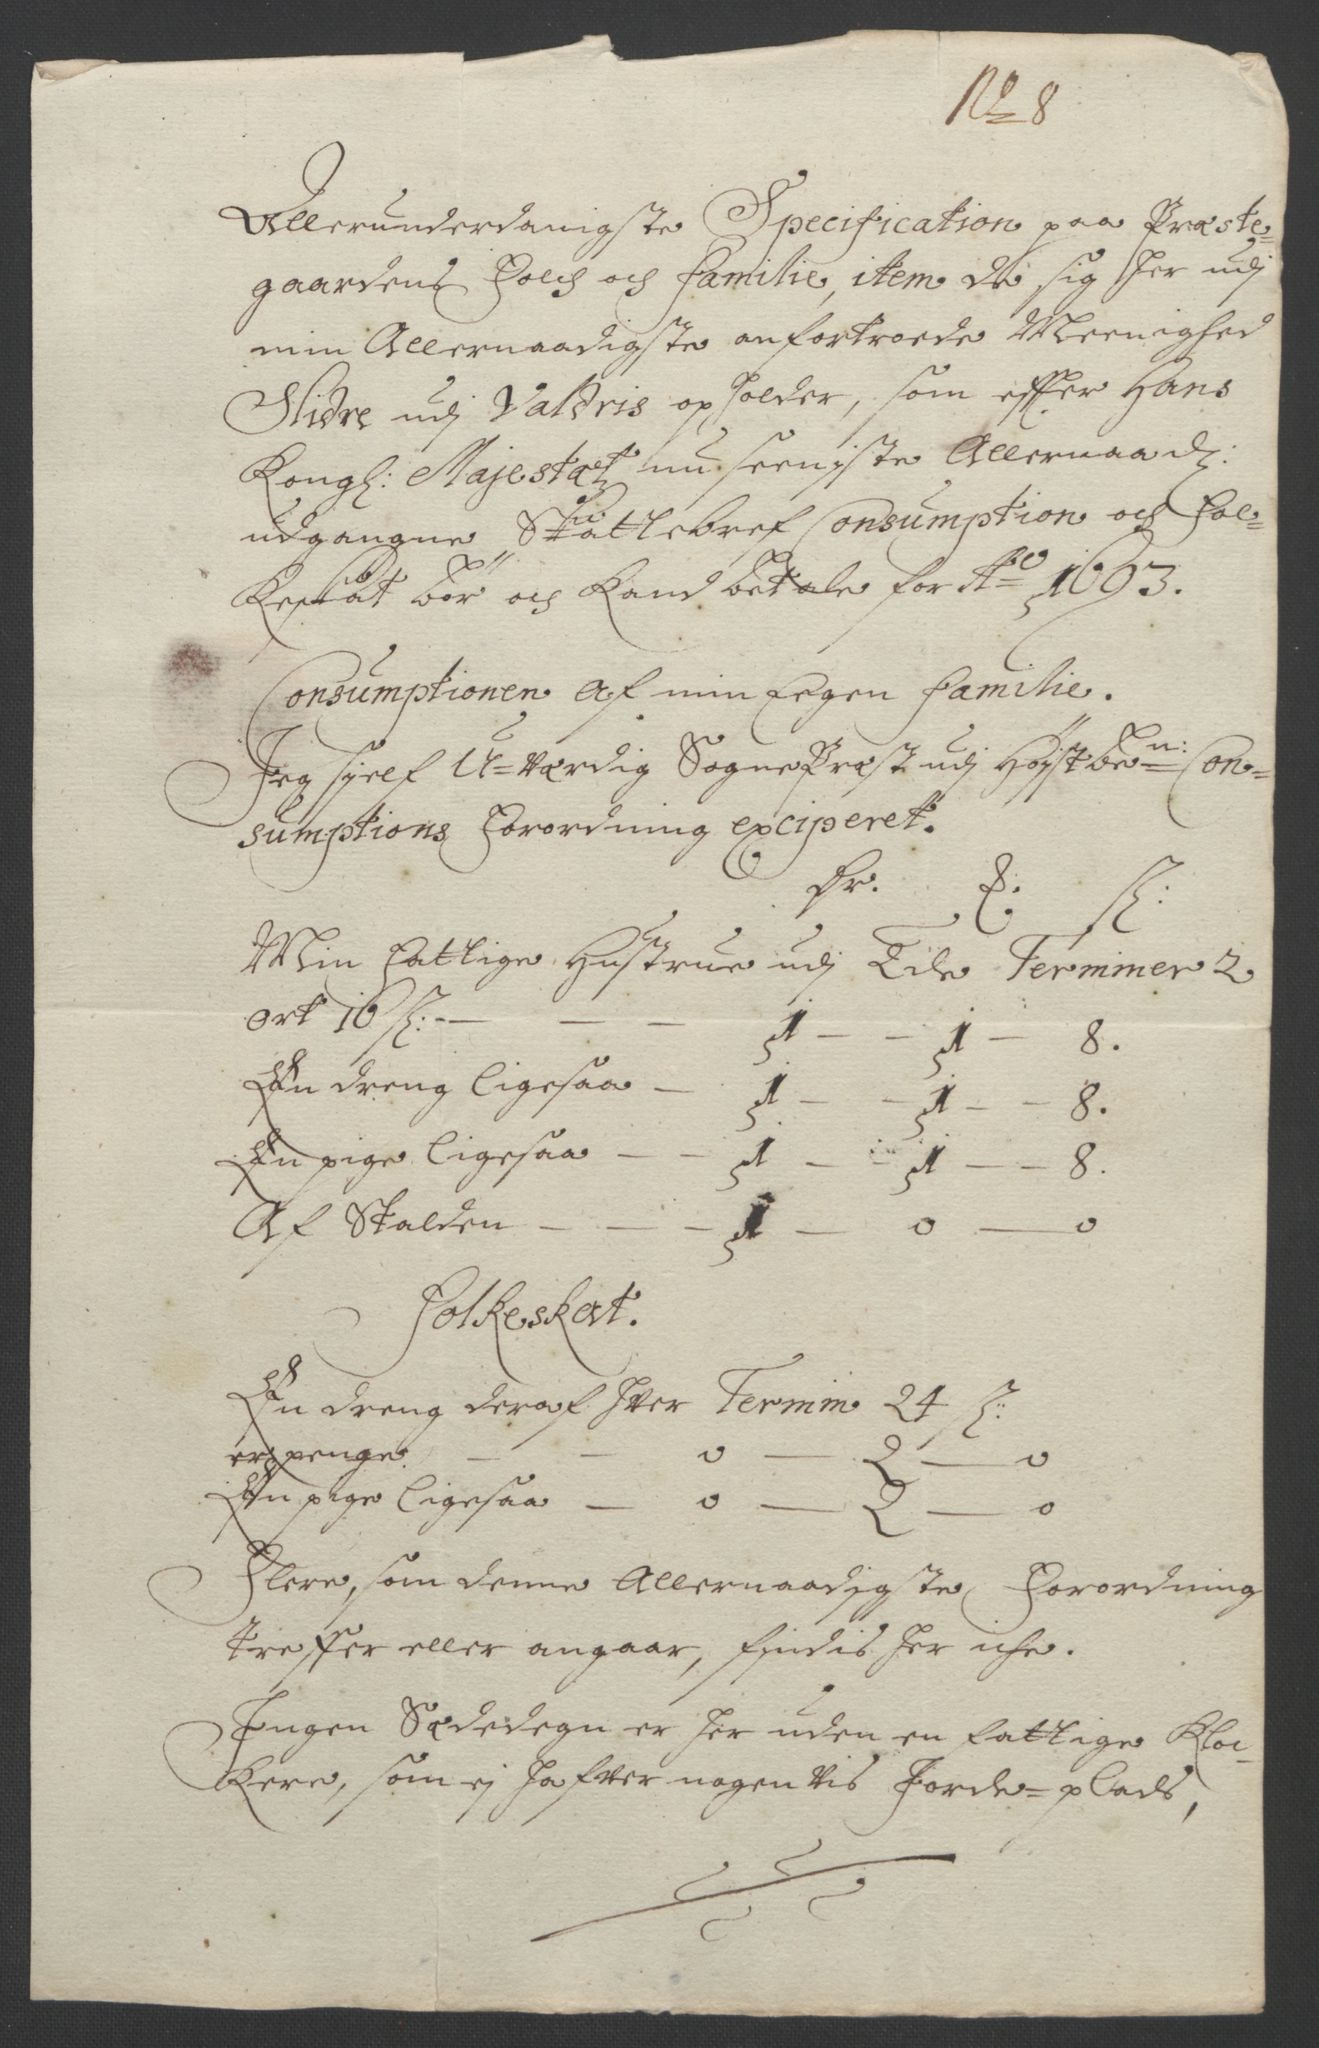 No 8
Allerunderdanigste Specification paa Præste-
gaardens Folch och Familie, item de sig her udj
min Allernaadigste anfortroede Meenighed
Slidre udj Valdris opholder, som effter Hans
Kongl: Majestæt nu seenjste Allernaad:
udgangne Skattebref Consumption och Fol-
keskat bör och kand betale for Ao 1693.
Consumptionen af min Eegen Familie.
Jeg sielf U-værdig SognePræst udj Højstben: Con-
sumptions Forordning exciperet.
Dr. ƺ: ſz:
Min fattige Hustrue udj Tile Terminer 2
ort 16 ſz: - - - 1 - - 1 - 8.
En dreng ligesaa - 1 - - 1 - - 8.
En pige ligesaa - - 1 - - 1 - - 8.
Af Skalden - - - 1 - 0 - 0
Folkeskat.
En dreng deraf hver Termin 24 ſz:
er penge. - - 0 - 2 - 0
En pige ligesaa - 0 - 2 - 0
Flere, som denne Allernaadjgste Forordning
treffer eller angaar, findis her iche.
Jngen Sædedegn er her uden en fattige Kloc-
kere, som ej hafver nogen vis Jorde-plads,